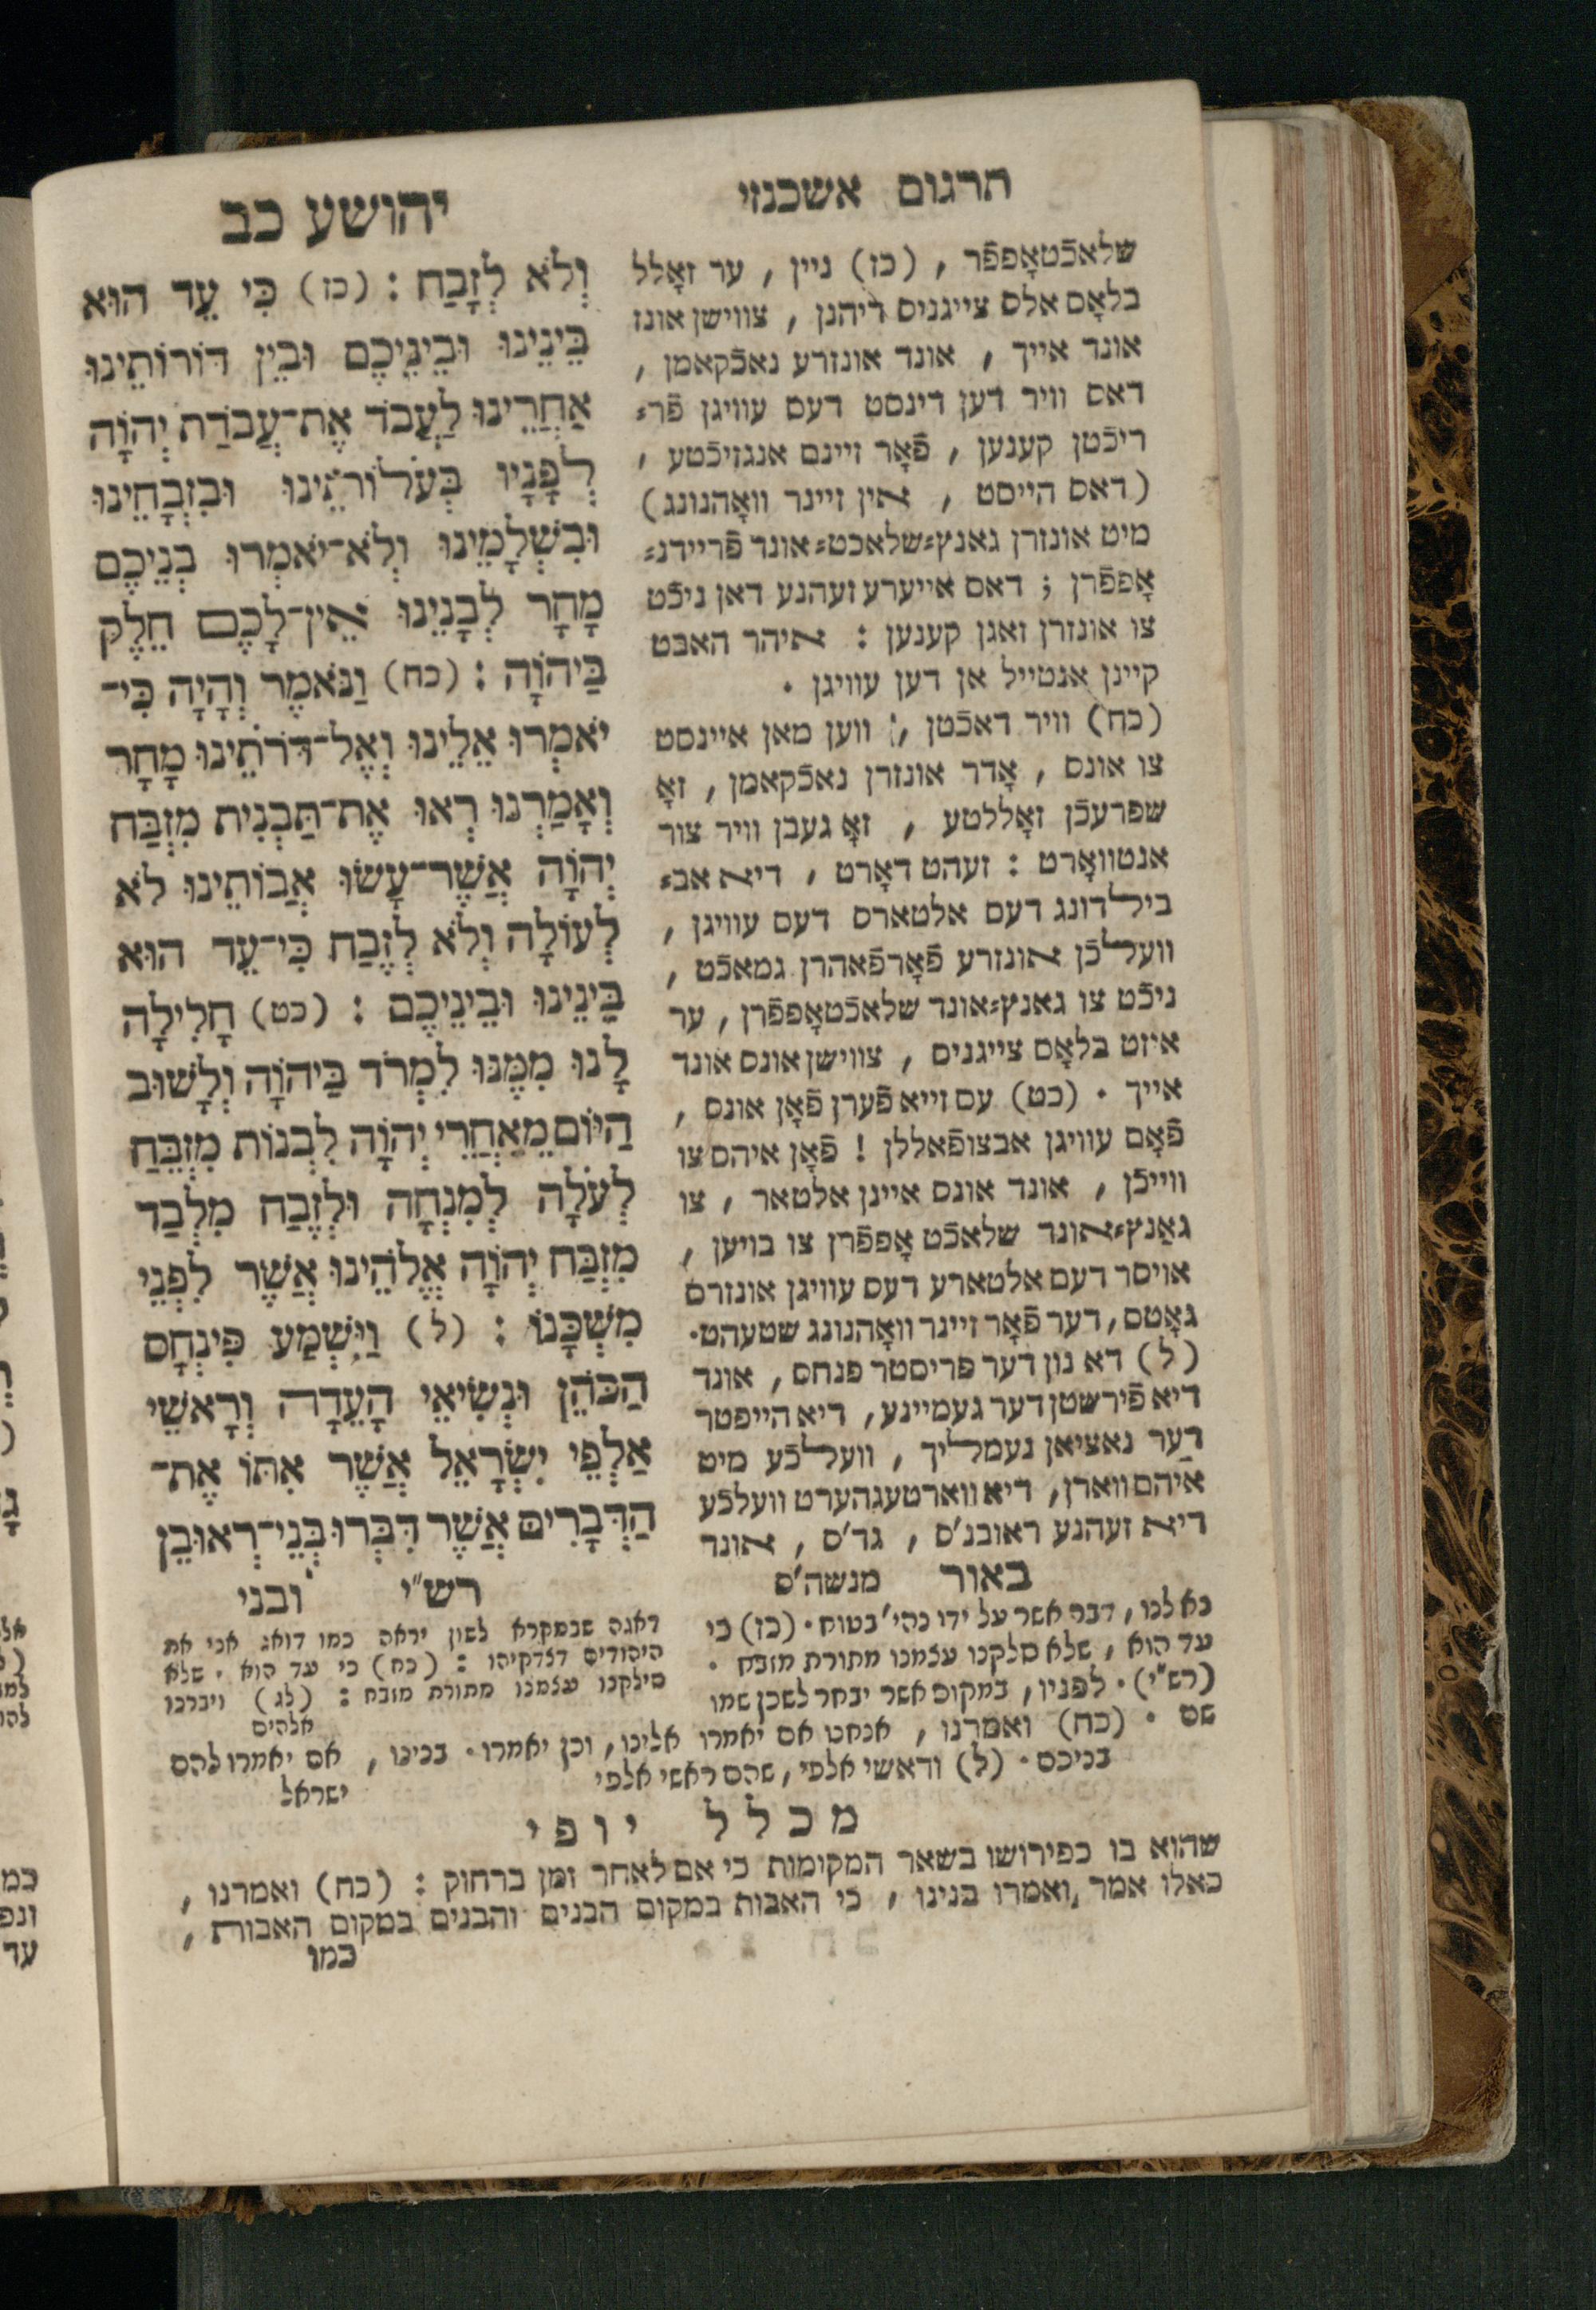 תרגום אשכנזי
יהושע כב
שלאכֿטאָפפֿר, (כז) ניין, ער זאָלל
בלאָס אלס צייגניס דיהנן, צווישן אונז
אונד אייך, אונד אונזרע נאכֿקאמן,
דאס וויר דען דינסט דעס עוויגן פֿר⸗
ריכֿטן קענען, פֿאָר זיינם אנגזיכֿטע,
(דאס הייסט, אין זיינר וואָהנונג)
מיט אונזרן גאנץ⸗שלאכט⸗אונד פֿריידנ⸗
אָפפֿרן; דאס אייערע זעהנע דאן ניכֿט
צו אונזרן זאגן קענען: איהר האבט
קיינן אנטייל אן דען עוויגן.
(כח) וויר דאכֿטן,: ווען מאן איינסט
צו אונס, אָדר אונזרן נאכֿקאמן, זאָ
שפרעכֿן זאָללטע, זאָ געבן וויר צור
אנטוואָרט: זעהט דאָרט, דיא אב⸗
בילדונג דעס אלטארס דעס עוויגן,
וועלכֿן אונזרע פֿאָרפֿאהרן גמאכֿט,
ניכֿט צו גאנץ⸗אונד שלאכֿטאָפפֿרן, ער
איזט בלאָס צייגניס, צווישן אונס אונד
אייך. (כט) עס זייא פֿערן פֿאָן אונס,
פֿאָם עוויגן אבצופֿאללן! פֿאָן איהם צו
ווייכֿן, אונד אונס איינן אלטאר, צו
גאַנץ⸗אונד שלאכֿט אָפפֿרן צו בויען,
אויסר דעם אלטארע דעס עוויגן אונזרס
גאָטס, דער פֿאָר זיינר וואָהנונג שטעהט.
(ל) דא נון דער פריסטר פנחס, אונד
דיא פֿירשטן דער געמיינע, דיא הייפטר
דער נאציאן נעמליך, וועלכֿע מיט
איהם ווארן, דיא ווארטע גהערט וועלכֿע
דיא זעהנע ראובנ'ס, גד'ס, אונד
מנשה'ס
וְלֹא לְזָבַח: (כז) כִּי עֵד הוּא
בֵּינֵינוּ וּבֵינֵיכֶם וּבֵין דּוֹרוֹתֵינוּ
אַחֲרֵינוּ לַעֲבֹד אֶת־עֲבֹדַת יְהוָֹה
לְפָנָיו בְּעֹלוֹתֵינוּ וּבִזְבָחֵינוּ
וּבִשְׁלָמֵינוּ וְלֹא־יֹאמְרוּ בְנֵיכֶם
מָחָר לְבָנֵינוּ אֵין־לָכֶם חֵלֶק
בַּיהוָֹה: (כח) וַנֹּאמֶר וְהָיָה כִּי־
יֹאמְרוּ אֵלֵינוּ וְאֶל־דֹּרֹתֵינוּ מָחָר
וְאָמַרְנוּ רְאוּ אֶת־תַּבְנִית מִזְבַּח
יְהוָֹה אֲשֶׁר־עָשׂוּ אֲבוֹתֵינוּ לֹא
לְעוֹלָה וְלֹא לְזֶבַח כִּי־עֵד הוּא
בֵּינֵינוּ וּבֵינֵיכֶם: (כט) חָלִילָה
לָּנוּ מִמֶּנּוּ לִמְרֹד בַּיהוָֹה וְלָשׁוּב
הַיּוֹם מֵאַחֲרֵי יְהוָֹה לִבְנוֹת מִזְבֵּחַ
לְעֹלָה לְמִנְחָה וּלְזָבַח מִלְּבַד
מִזְבַּח יְהוָֹה אֱלֹהֵינוּ אֲשֶׁר לִפְנֵי
מִשְׁכָּנוֹ: (ל) וַיִּשְׁמַע פִּינְחָס
הַכֹּהֵן וּנְשִׂיאֵי הָעֵדָה וְרָאשֵׁי
אַלְפֵי יִשְׂרָאֵל אֲשֶׁר אִתּוֹ אֶת־
הַדְּבָרִים אֲשֶׁר דִּבְּרוּ בְּנֵי־רְאוּבֵן
ובני
באור
בא לנו, דבר אשר על ידו נהי' בטוח. (כז) כי
עד הוא, שלא סלקנו עצמנו מתורת מזבח.
(רש"י). לפניו, במקום אשר יבחר לשכן שמו
שם. (כח) ואמרנו, אנחנו אם יאמרו אלינו, וכן יאמרו. בנינו, אם יאמרו להם
בניכם. (ל) וראשי אלפי, שהם ראשי אלפי
ישראל
רש"י
דאגה שבמקרא לשון יראה כמו דואג אני את
היהודים דצדקיהו: (כח) כי עד הוא. שלא
סילקנו עצמנו מתורת מזבח: (לג) ויברכו
אלהים
מכלל יופי
שהוא בו כפירושו בשאר המקומות כי אם לאחר זמן ברחוק: (כח) ואמרנו,
כאלו אמר ואמרו בנינו, כי האבות במקום הבנים והבנים במקום האבות,
כמו